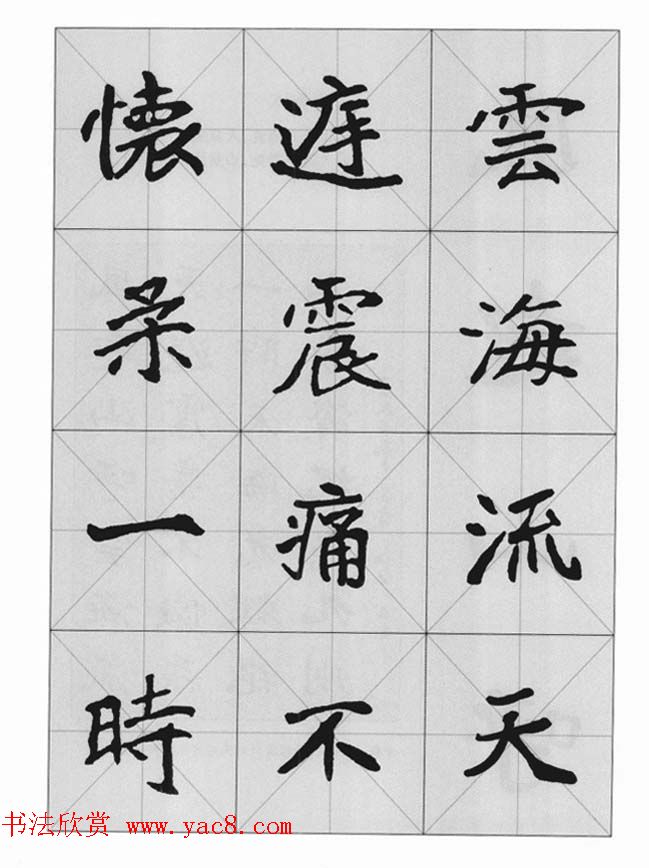 雲海流天
震痛不
懷柔一時
书法欣赏 www.yac8.com